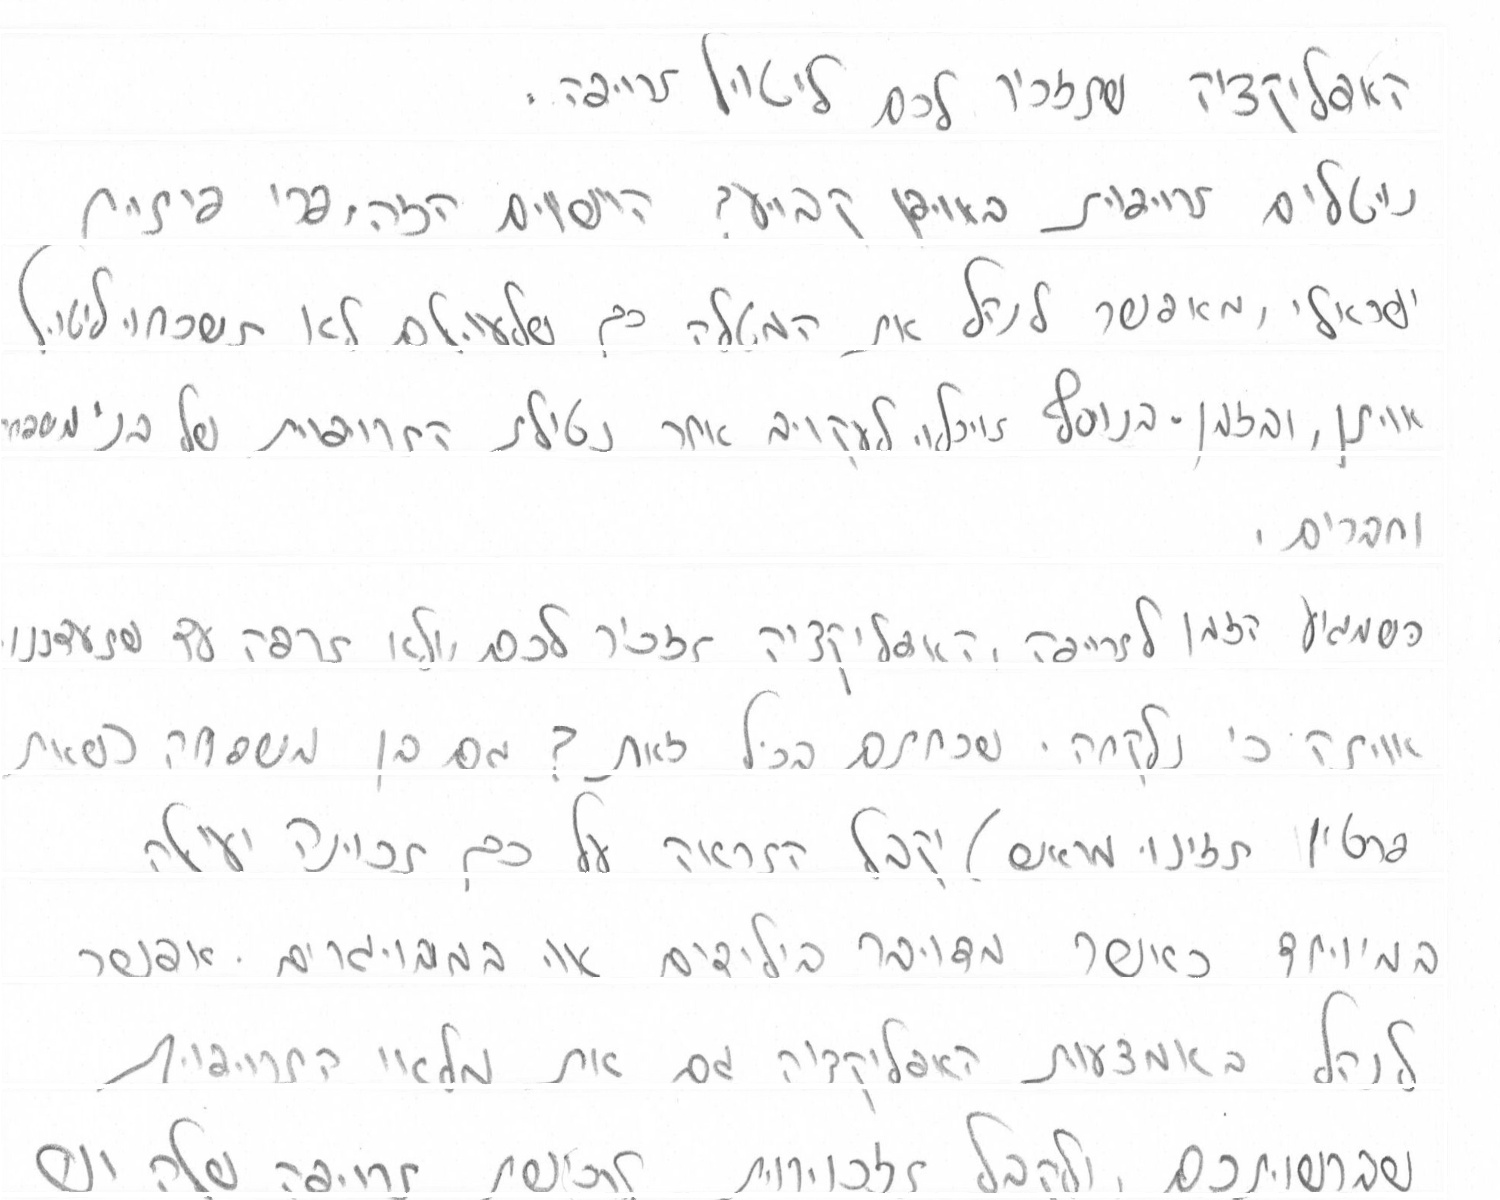 האפליקציה שתזכיר לכם ליטול תרופה.
נוטלים תרופות באופן קבוע? היישום הזה, פרי פיתוח
ישראלי, מאפשר לנהל את המטלה כך שלעולם לא תשכחו ליטול
אותן, ובזמן-בנוסף תוכלו לעקוב אחר נטילת התרופות של בני משפחה
וחברים.
כשמגיע הזמן לתרופה, האפליקציה תזכיר לכם, ולא תרפה עד שתעדכנו
אותה כי נלקחה. שכחתם בכל זאת? גם בן משפחה (שאת
פרטיו תזינו מראש) יקבל התראה על כך תכונה יעילה
במיוחד כאשר מדובר בילדים או במבוגרים. אפשר
לנהל באמצעות האפליקציה גם את מלאי התרופות
שברשותכם, ולקבל תזכורות לרכישת תרופה שלה יש